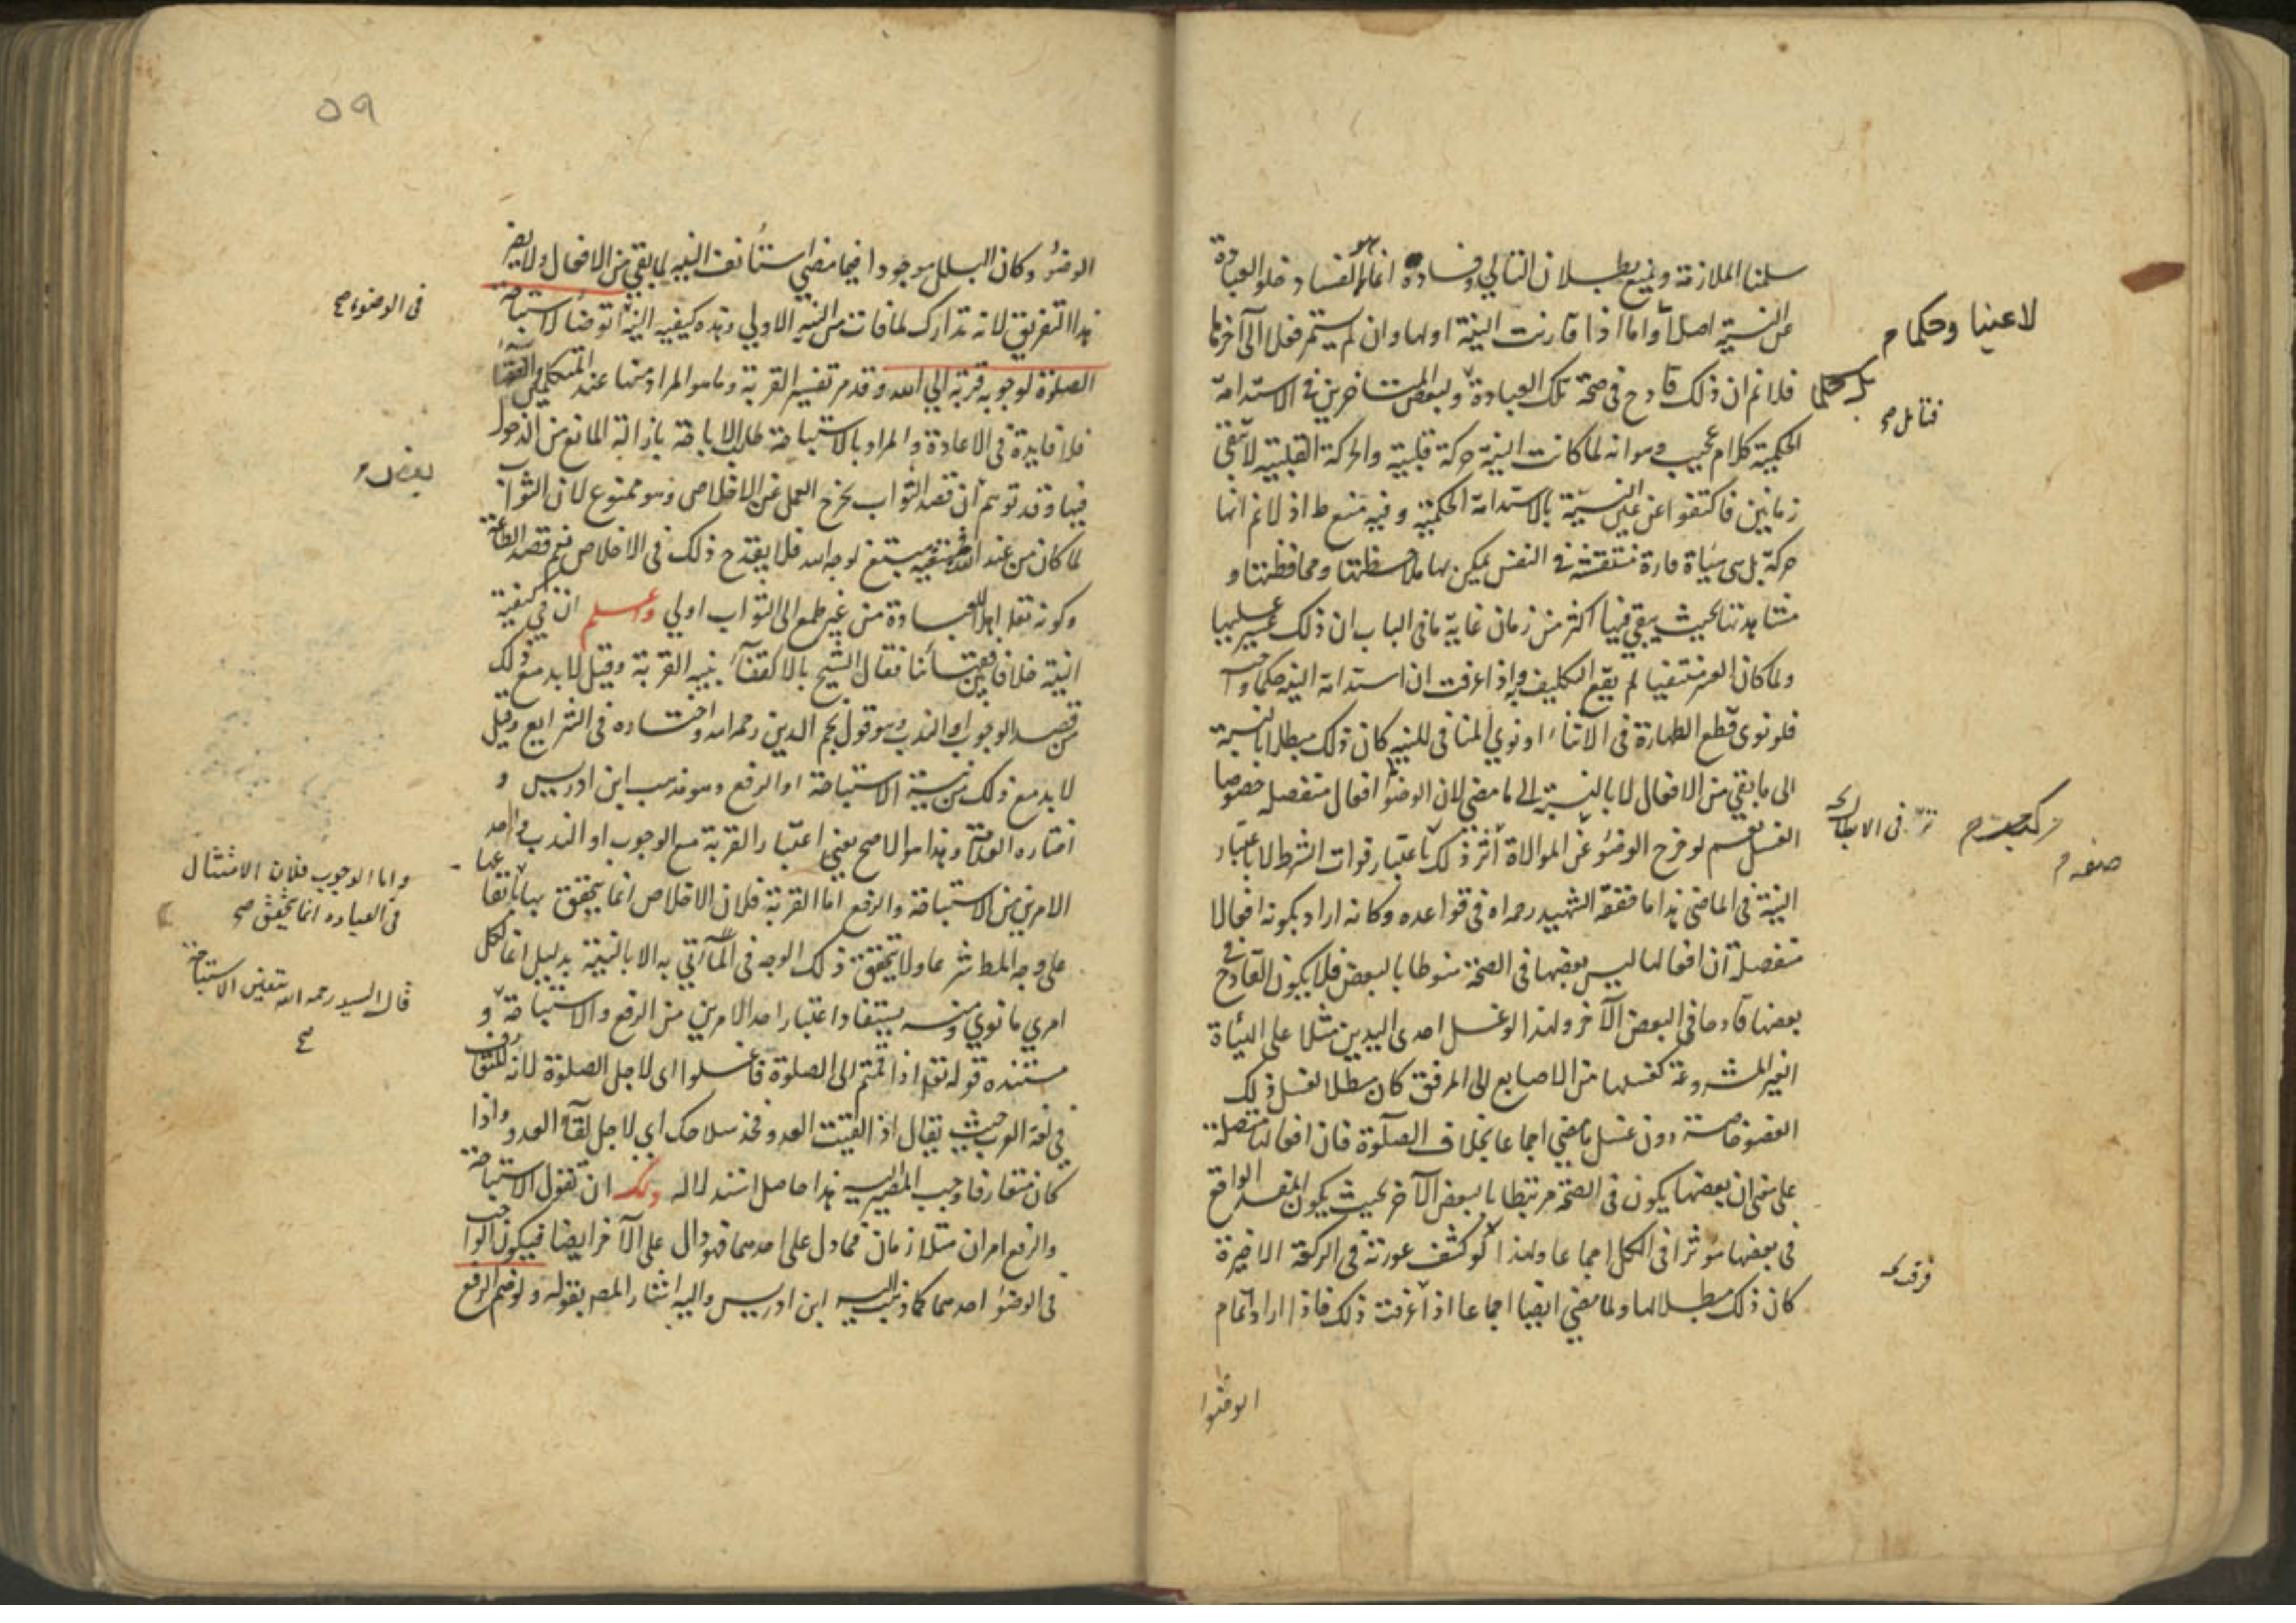 سلمنا الملازمة ونمنع بطلان التالي وفساده انما هو الفساد خلو العبادة
عن النية اصلا واما اذا قارنت النية اولها وان لم يستمر فعلا الى آخرها
لا عينا وحكما
فلا نم ان ذلك قادح فى صحة تلك العبادة ولبعض المتاخرين فى الاستدامة
بل حكما
فتامل صح
الحكمية كلام عجيب وهو انه لما كانت النية حركة قلبية والحركة القلبية لا تبقى
زمانين فاكتفوا عن عين النية بالاستدامة الحكمية وفيه منع ط اذ لا نم انها
حركة بل هى هيأة قارة منتقشة فى النفس يمكن بها ملاحظتها ومحافظتها و
مشاهدتها بحيث يبقى فيها اكثر من زمان غاية ما فى الباب ان ذلك عسير عليها
ولما كان العسر منتفيا لم يقع التكليف به واذا عرفت ان استدامة النية حكما واجب
فلو نوى قطع الطهارة فى الاثناء او نوى المنافى للنية كان ذلك مبطلا بالنسبة
الى ما بقي من الافعال لا بالنسبة الى ما مضى لان الوضوء افعال منفصلة خصوصا
الغسل نعم لو خرج الوضوء عن الموالاة اثر ذلك باعتبار فوات الشرط لا باعتبار
فى الابطال
النية فى الماضى هذا ما حققه الشهيد رحمه الله فى قواعده وكانه اراد بكونه افعالا
منفصلة ان افعالها ليس بعضها فى الصحة منوطا بالبعض فلا يكون القادح فى
بعضها قادحا فى البعض الآخر ولهذا لو غسل احدى اليدين مثلا على الهيأة
الغير المشروعة كغسلها من الاصابع الى المرفق كان مبطلا لغسل ذلك
العضو خاصة دون غسل ما مضى اجماعا بخلاف الصلوة فان افعالها متصلة
على معنى ان بعضها يكون فى الصحة مرتبطا بالبعض الآخر بحيث يكون المفسد الواقع
فى بعضها مؤثرا فى الكل اجماعا ولهذا لو كشف عورته فى الركعة الاخيرة
كان ذلك مبطلا لها ولما مضى ايضا اجماعا اذا عرفت ذلك فاذا اراد اتمام
الوضوء
٥٩
الوضوء وكان البلل موجودا فيما مضى استأنف النية لما بقي من الافعال ولا يضر
هذا التفريق لانه تدارك لما فات من النية الاولى وهذه كيفية النية اتوضأ لاستباحة
فى الوضوء صح
الصلوة لوجوبه قربة الى الله وقد مر تفسير القربة وما هو المراد منها عند المتكلمين والفقهاء
فلا فايدة فى الاعادة والمراد بالاستباحة طلب الاباحة بازالة المانع من الدخول
فيها وقد توهم ان قصد الثواب يخرج العمل عن الاخلاص وهو ممنوع لان الثواب
بعض
لما كان من عند الله فمبتغيه مبتغ لوجه الله فلا يقدح ذلك فى الاخلاص نعم قصد الطاعة
وكونه تعالى اهلا للعبادة من غير طمع الى الثواب اولى واعلم ان فى كيفية
النية خلافا بين فقهائنا فقال الشيخ بالاكتفاء بنية القربة وقيل لا بد مع ذلك
من قصد الوجوب او الندب وهو قول نجم الدين رحمه الله واختاره فى الشرايع وقيل
لا بد مع ذلك من نية الاستباحة او الرفع وهو مذهب ابن ادريس و
اختاره العلامة وهذا هو الاصح يعني اعتبار القربة مع الوجوب او الندب واحد
الامرين من الاستباحة والرفع اما القربة فلان الاخلاص انما يتحقق بها
واما الوجوب فلان الامتثال
فى العباده انما يتحقق صح
على وجه المط شرعا ولا يتحقق ذلك الوجه فى المأتي به الا بالنية بدليل انما لكل
امرئ ما نوى ومنه يستفاد اعتبار احد الامرين من الرفع والاستباحة و
قال السيد رحمه الله يتعين الاستباحة
صح
مستنده قوله تعالى اذا قمتم الى الصلوة فاغسلوا اى لاجل الصلوة لانه المتعارف
فى لغة العرب حيث يقال اذا لقيت العدو فخذ سلاحك اى لاجل لقاء العدو واذا
كان متعارفا وجب المصير اليه هذا حاصل استدلاله ولك ان تقول الاستباحة
والرفع امران متلازمان فما دل على احدهما فهو دال على الآخر ايضا فيكون الواجب
فى الوضوء احدهما كما ذهب اليه ابن ادريس واليه اشار المصر بقوله ولو ضم الرفع